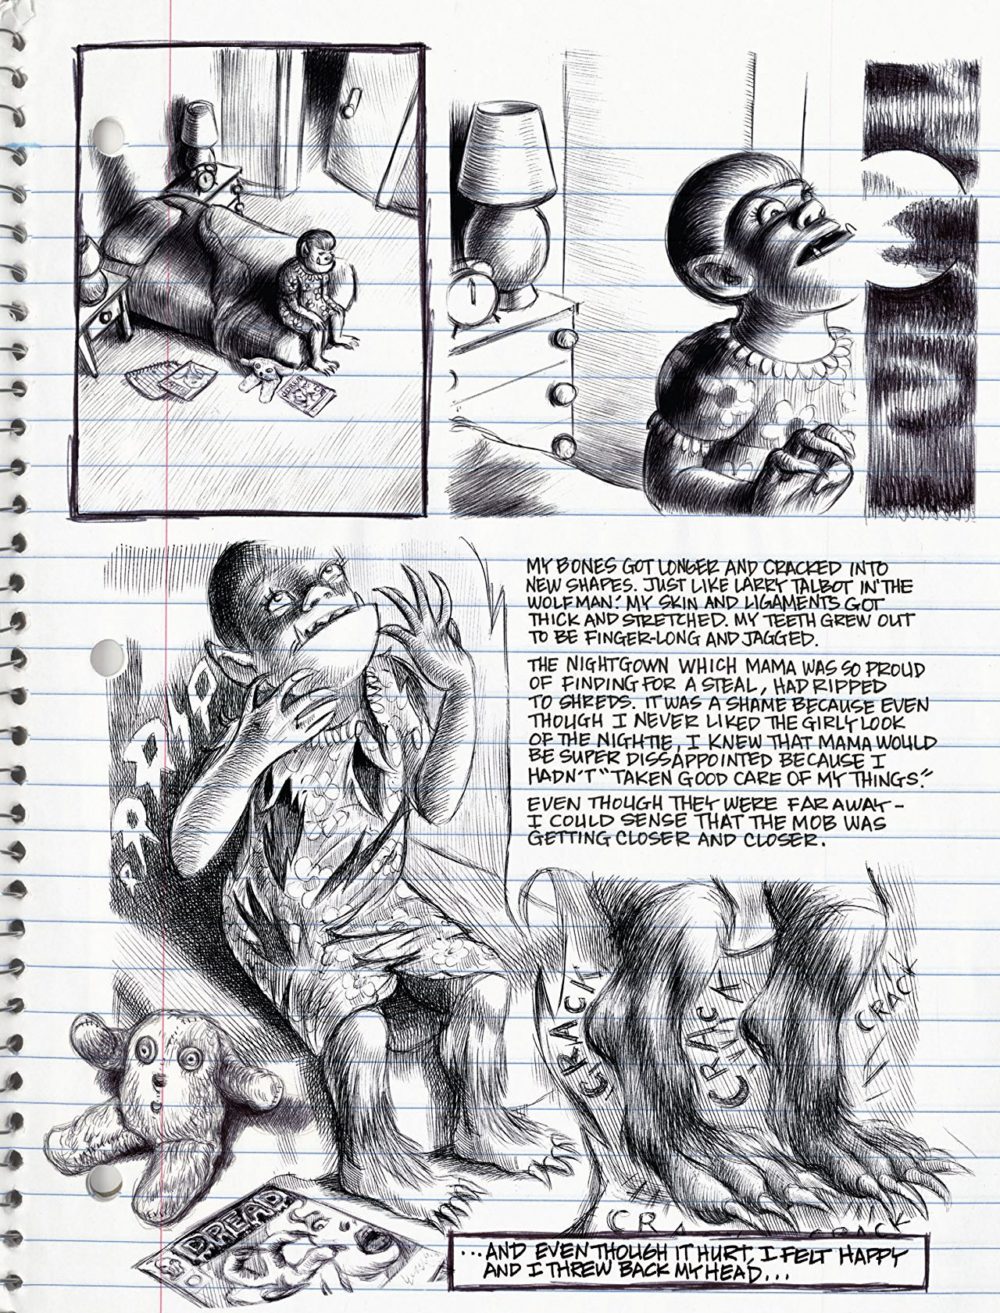 RRRIP
MY BONES GOT LONGER AND CRACKED INTO
NEW SHAPES. JUST LIKE LARRY TALBOT IN "THE
WOLFMAN." MY SKIN AND LIGAMENTS GOT
THICK AND STRETCHED. MY TEETH GREW OUT
TO BE FINGER-LONG AND JAGGED.
THE NIGHTGOWN WHICH MAMA WAS SO PROUD
OF FINDING FOR A STEAL, HAD RIPPED
TO SHREDS. IT WAS A SHAME BECAUSE EVEN
THOUGH I NEVER LIKED THE GIRLY LOOK
OF THE NIGHTIE, I KNEW THAT MAMA WOULD
BE SUPER DISSAPPOINTED BECAUSE I
HADN'T "TAKEN GOOD CARE OF MY THINGS."
EVEN THOUGH THEY WERE FAR AWAY-
I COULD SENSE THAT THE MOB WAS
GETTING CLOSER AND CLOSER.
CRACK
CRACK
CRACK
DREAD
CRA
CRACK
...AND EVEN THOUGH IT HURT, I FELT HAPPY
AND I THREW BACK MY HEAD...